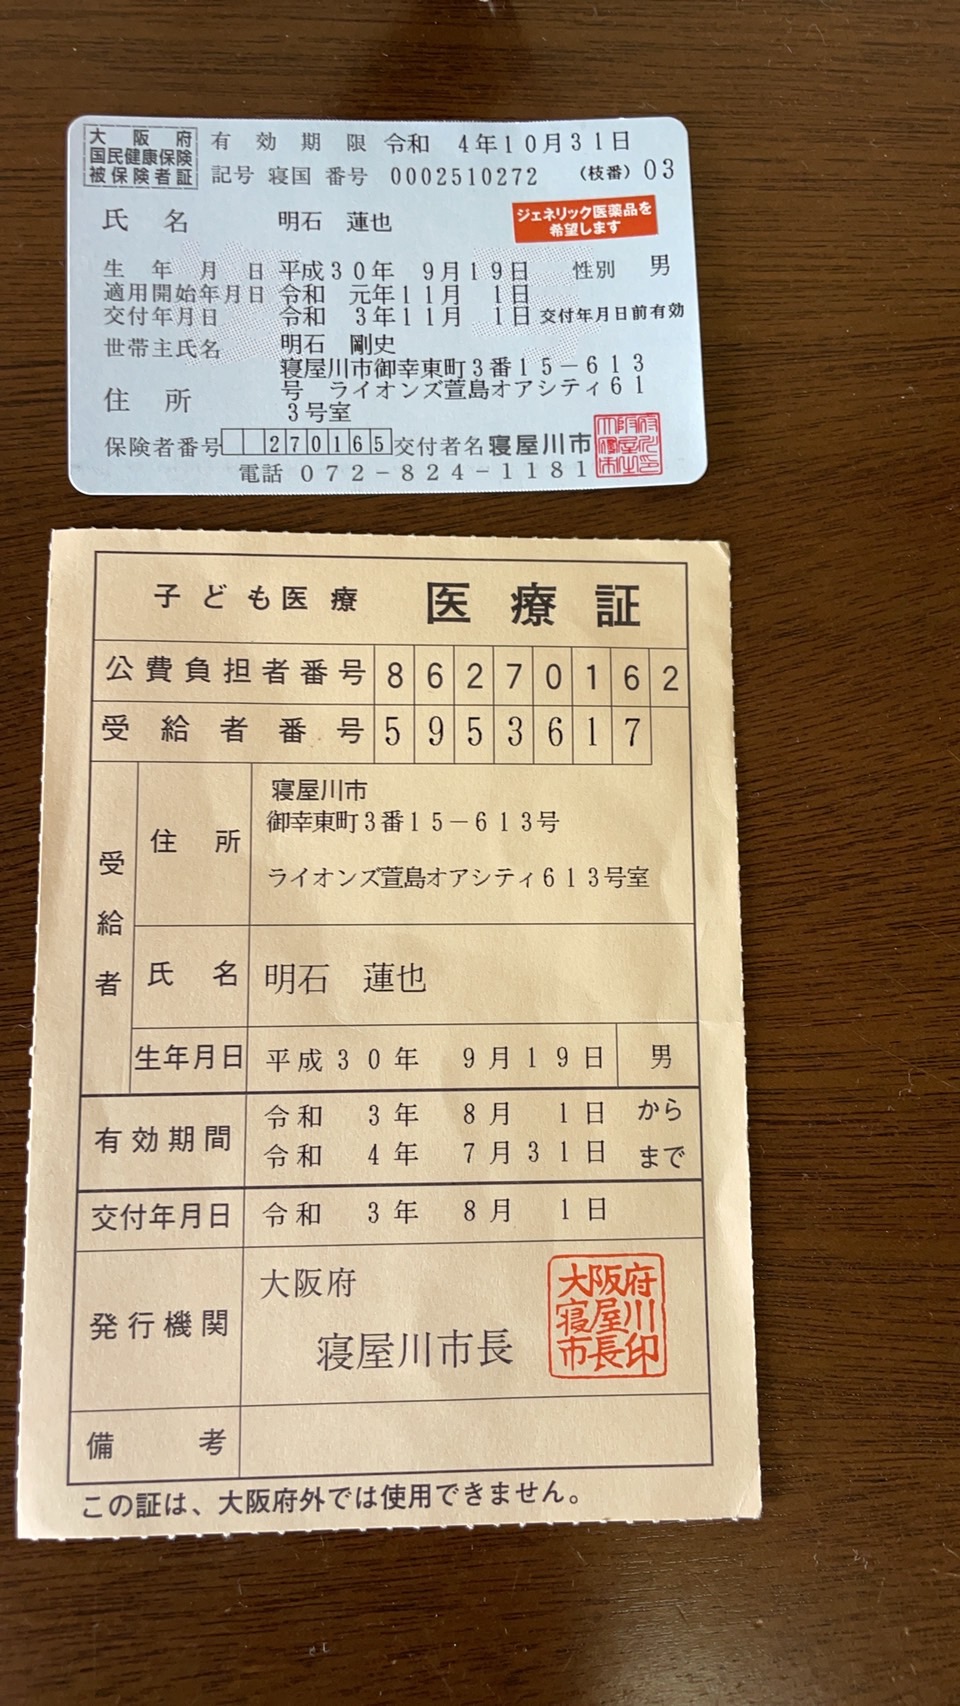 大阪府
国民健康保険
被保険者証
有効期限 令和 4年10月31日
記号 寝国 番号 0002510272 (枝番) 03
氏名 明石 蓮也
ジェネリック医薬品を
希望します
生年月日 平成30年 9月19日 性別 男
適用開始年月日 令和 元年11月 1日
交付年月日 令和 3年11月 1日 交付年月日前有効
世帯主氏名 明石 剛史
住所 寝屋川市御幸東町3番15-613
号 ライオンズ萱島オアシティ61
3号室
保険者番号 270165 交付者名 寝屋川市
電話 072-824-1181
子ども医療 医療証
公費負担者番号 86270162
受給者番号 5953617
受給者
住所 寝屋川市
御幸東町3番15-613号
ライオンズ萱島オアシティ613号室
氏名 明石 蓮也
生年月日 平成30年 9月19日 男
有効期間 令和 3年 8月 1日 から
令和 4年 7月31日 まで
交付年月日 令和 3年 8月 1日
発行機関 大阪府
寝屋川市長
大阪府
寝屋川
市長印
備考
この証は、大阪府外では使用できません。